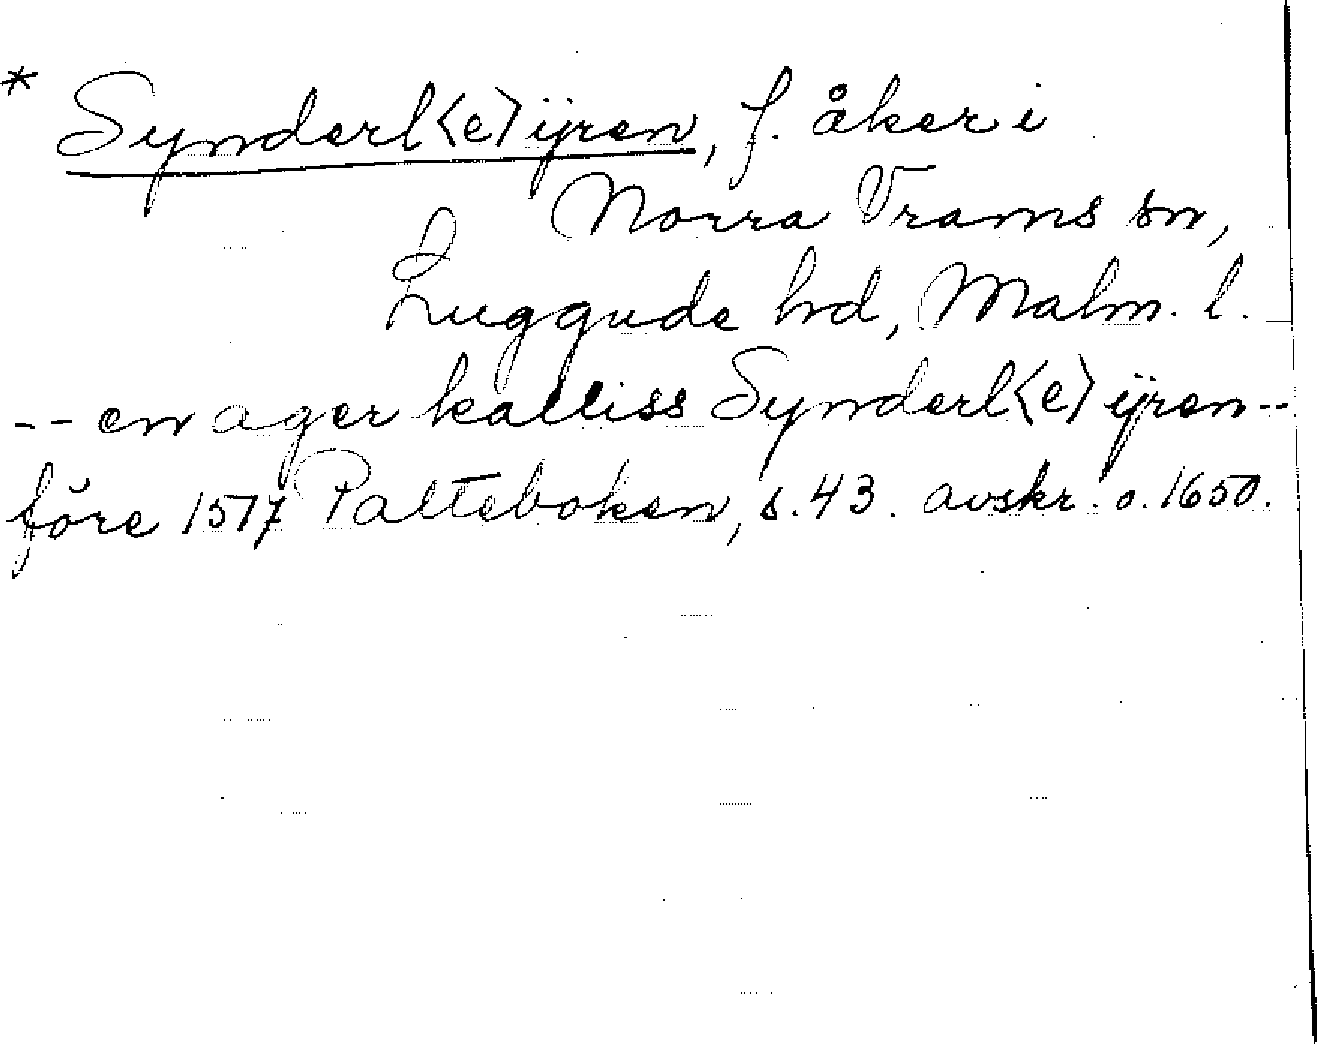 * Synderl<e>ÿren, f. åker i
Norra Vrams sn,
Luggude hd, Malm. l.
-- en ager kalliss Synderl<e>ÿren --
före 1577 Palteboken, s. 43. avskr. o. 1650.